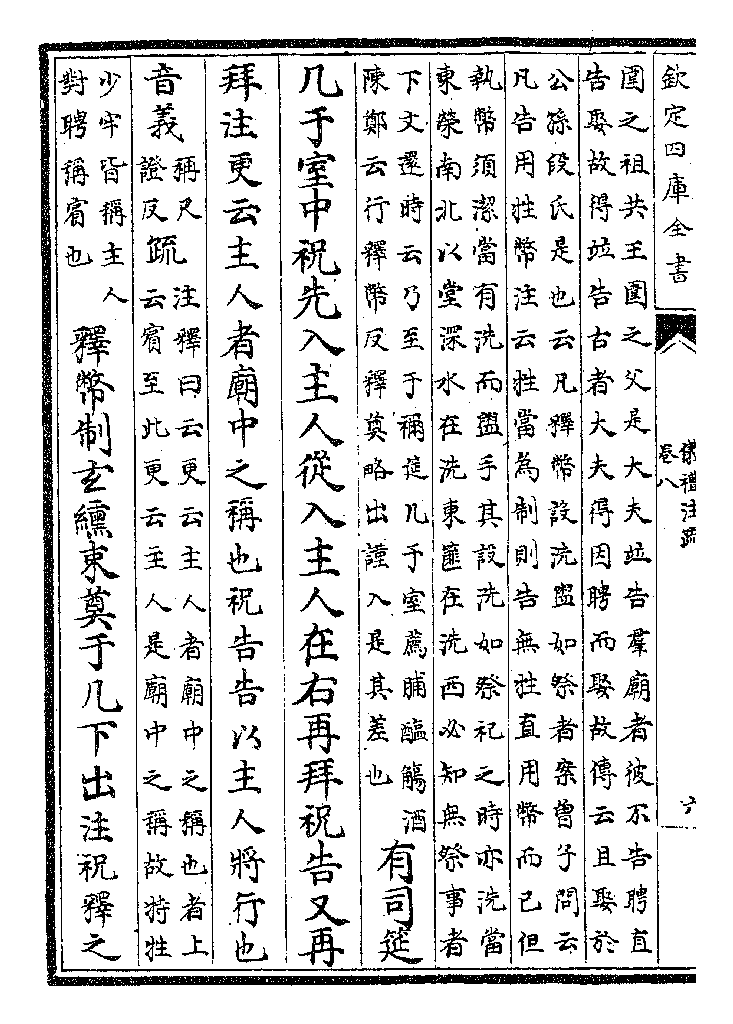 欽定四庫全書
儀禮注疏
卷八
六
圍之祖共王圍之父是大夫竝告羣廟者彼不告聘直
告娶故得竝告古者大夫得因聘而娶故傳云且娶於
公孫段氏是也云凡釋幣設洗盥如祭者案曾子問云
凡告用牲幣注云牲當為制則告無牲直用幣而已但
執幣須潔當有洗而盥手其設洗如祭祀之時亦洗當
東榮南北以堂深水在洗東篚在洗西必知無祭事者
下文還時云乃至于禰筵几于室薦脯醢觴酒
陳鄭云行釋幣反釋奠略出謹入是其差也
有司筵
几于室中祝先入主人從入主人在右再拜祝告又再
拜注更云主人者廟中之稱也祝告告以主人將行也
音義
稱尺
證反
疏
注釋曰云更云主人者廟中之稱也者上
云賓至此更云主人是廟中之稱故特牲
少牢皆稱主人
對聘稱賓也
釋幣制玄纁束奠于几下出注祝釋之